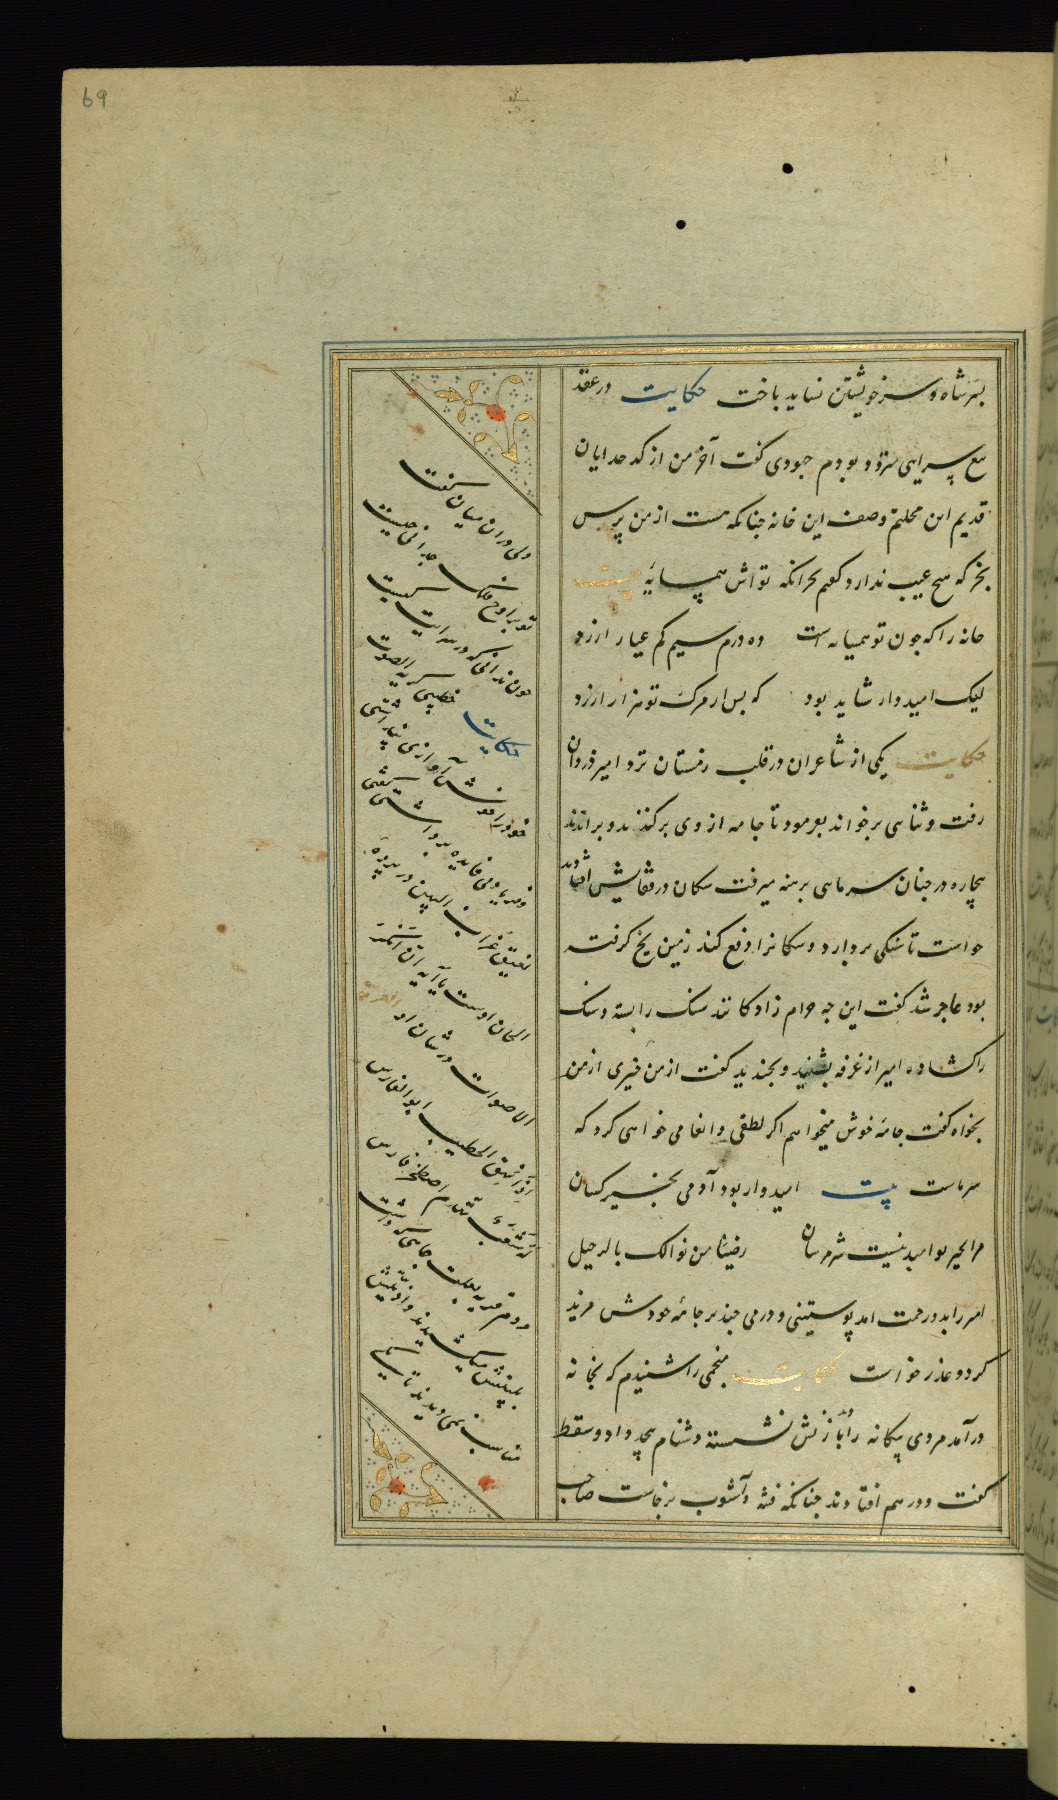 69
بسر شاه و سر خویشتن نباید باخت حکایت در عقد
بیع سرایی متردد بودم جهودی گفت آخر من از کدخدایان
قدیم این محلتم وصف این خانه چنانکه هست از من پرس
بخر که هیچ عیب ندارد گفتم بجز انکه تواش همسایهٔ بیت
خانه را که چون تو همسایه است ده درم سیم کم عیار ارزد
لیک امیدوار شاید بود که پس از مرگ تو هزار ارزد
حکایت یکی از شاعران در قلب زمستان نزد امیر دزدان
رفت و ثنایی برخواند بفرمود تا جامه از وی برکنند و براندند
بیچاره در چنان سرمایی برهنه میرفت سکان در قفایش افتادند
خواست تا سنکی بردارد و سکانرا دفع کند زمین یخ کرفته
بود عاجز شد کفت این چه حرام زادکانند سنک را بسته و سک
را کشاده امیر از غرفه بشنید و بخندید کفت از من چیزی
بخواه کفت جامه خوش میخواهم اکر لطفی و انعامی خواهی کرد که
سرماست بیت امیدوار بود آدمی بخیر کسان
مرا بخیر تو امید نیست شر مرسان رضینا من نوالک بالرحیل
امیر را بدو رحمت امد پوستینی و درمی چند بر جامه خودش مزید
کرد و عذر خواست حکایت منجمی را شنیدم که بخانه
درآمد مردی بیکانه را دید با زنش نشسته دشنام بیحد داد و سقط
کفت و درهم افتادند چنانکه فتنه و آشوب برخاست صاحب
دلی در ان میان کفت
تو بر اوج فلک چه دانی چیست
چون ندانی که در سرایت کیست
حکایت خطیبی کریه الصوت
خود را خوش آواز می پنداشتی
و فریاد بی فایده برداشتی کفتی
نعیق غراب البین در پرده
الحان اوست یا آیه ان انکر
الاصوات در شان او العربیه
اذا نهق الخطیب ابو الفوارس
له شغب یهدم اصطخر فارس
مردم قریه بعلت جاهی که داشت
بلیتش میکشیدند و اذیتش
مناسب نمی دیدند تا یکی